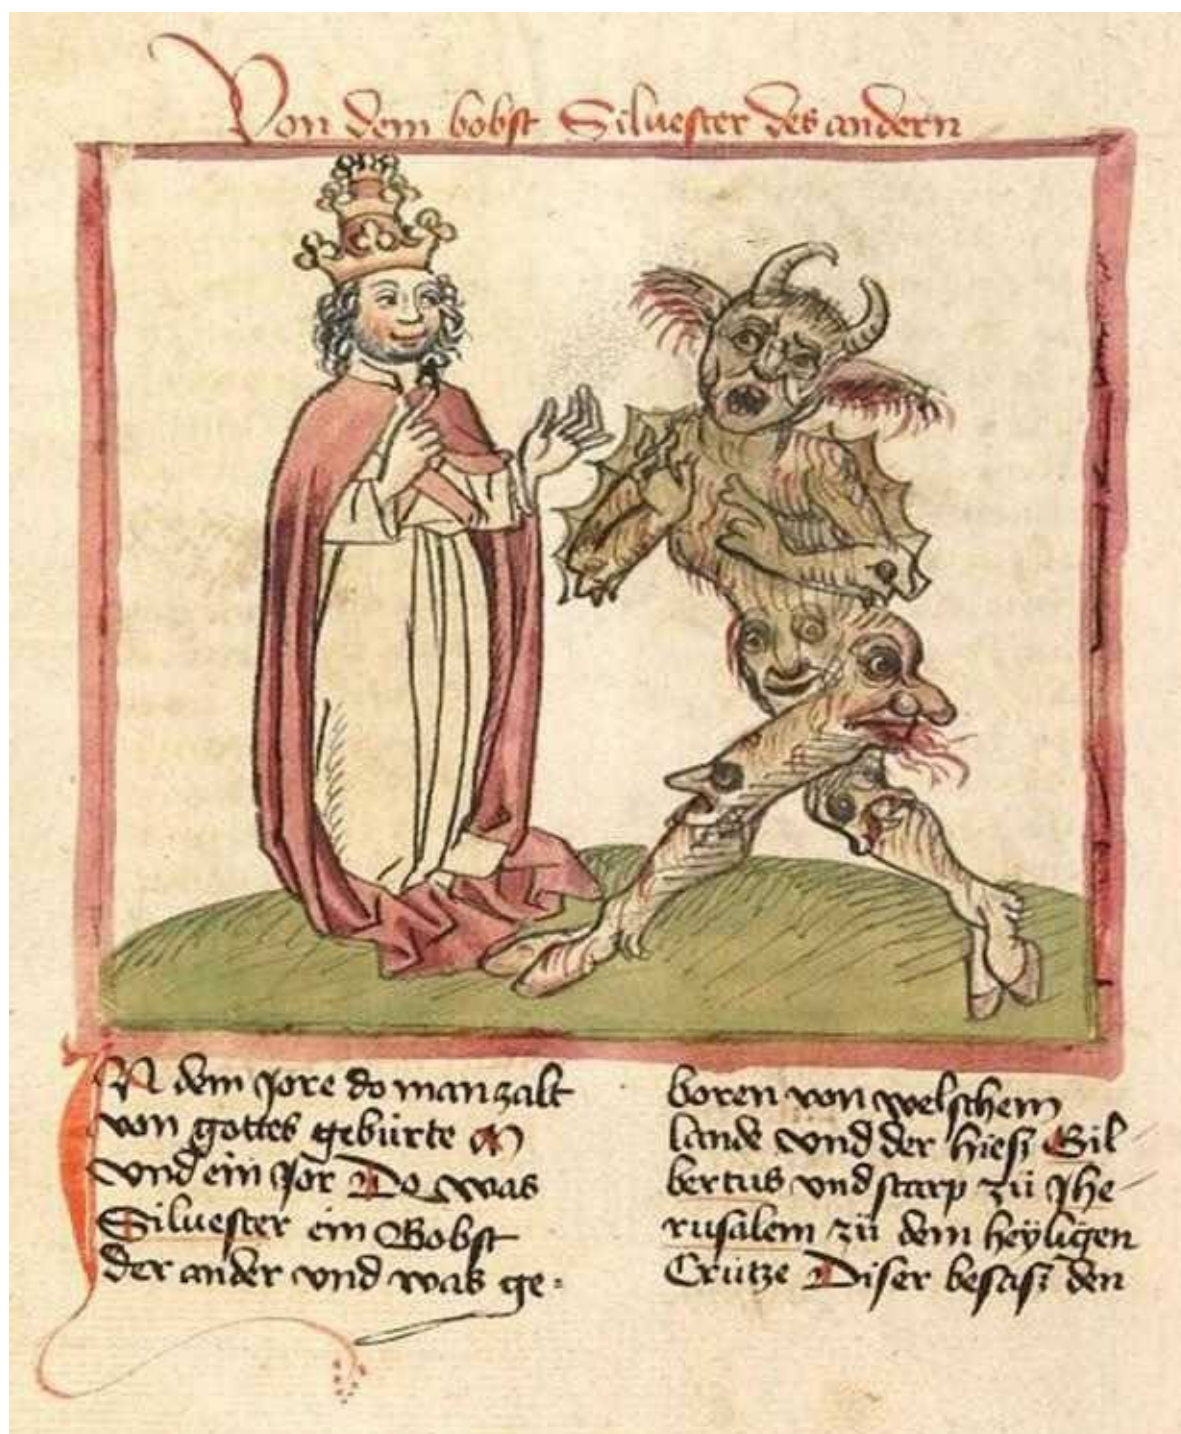 Von dem bobst Siluester des andern
IN dem jore do man zalt
von gottes gebürte M
vnd ein jor Do was
Siluester ein Bobst
der ander vnd was ge=
boren von welschem
lande vnd der hiesz Gil
bertus vnd starp zü Jhe
rusalem zü dem heyligen
Crütze Diser besasz den